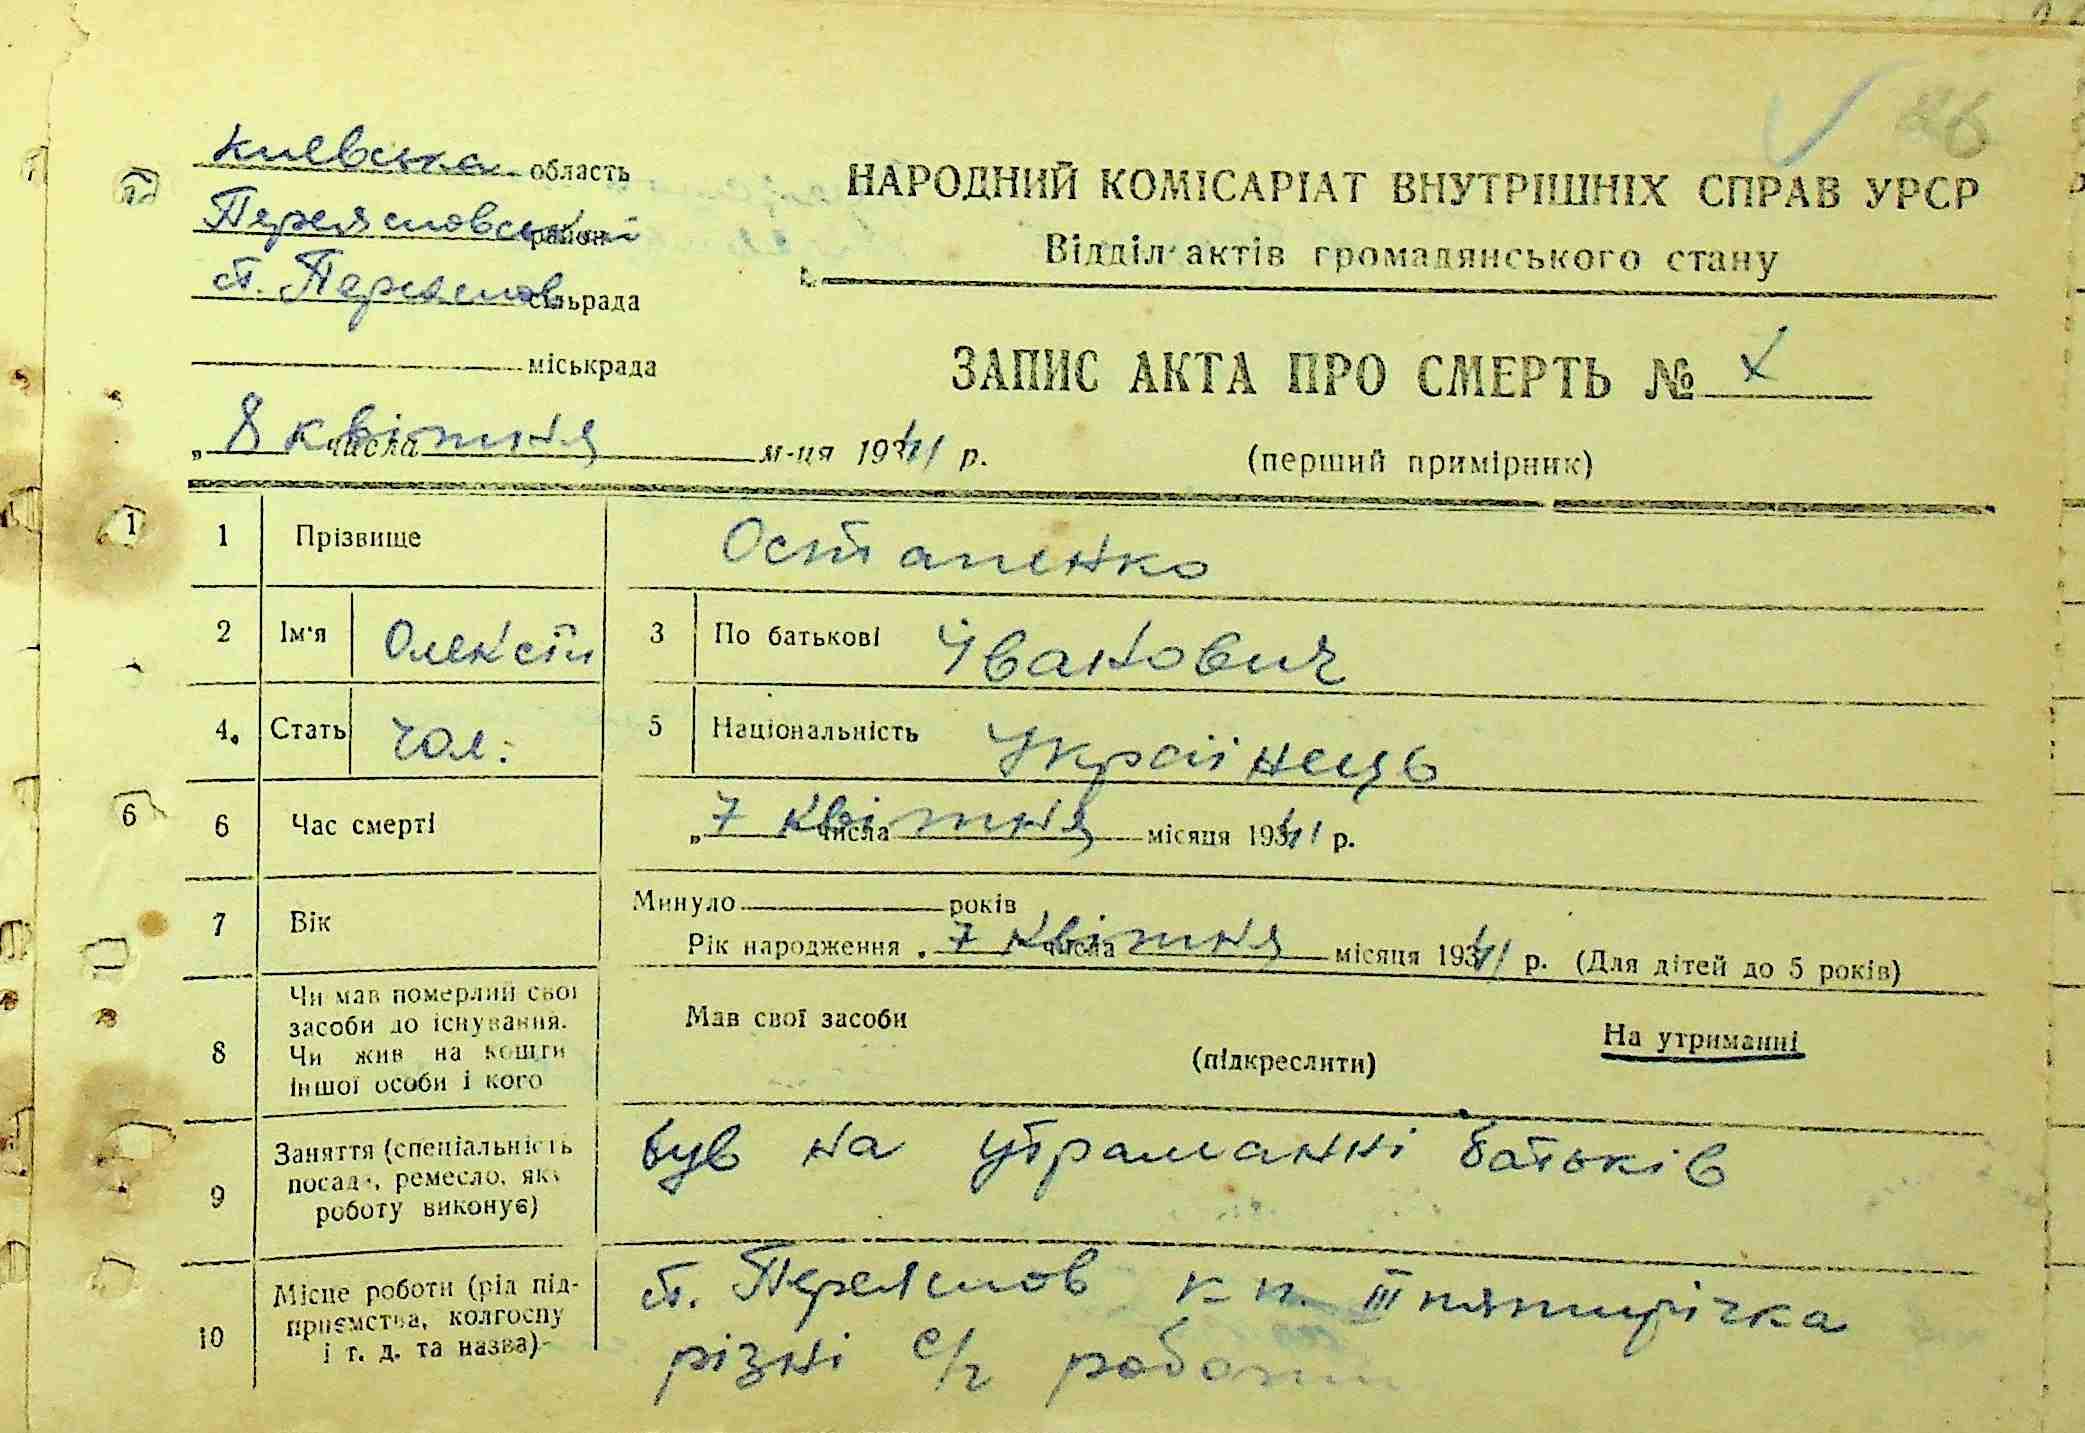 Киевська область
Переяславський район
ст. Переяслов сільрада
міськрада
НАРОДНИЙ КОМІСАРІАТ ВНУТРІШНІХ СПРАВ УРСР
Відділ актів громадянського стану
ЗАПИС АКТА ПРО СМЕРТЬ №
„ 8 квітня числа м-ця 1941 р.
(перший примірник)
1 Прізвище Остапенко
2 Ім'я Олексій 3 По батькові Іванович
4. Стать чол. 5 Національність Українець
6 6 Час смерті „ 7 квітня числа місяця 1941 р.
7 Вік Минуло років
Рік народження „ 7 квітня числа місяця 1941 р. (Для дітей до 5 років)
8 Чи мав померлий свої
засоби до існування.
Чи жив на кошти
іншої особи і кого
Мав свої засоби (підкреслити) На утриманні
9 Заняття (спеціальність
посада, ремесло, яку
роботу виконує)
був на утраманні батьків
10 Місце роботи (рід під-
приємства, колгоспу
і т. д. та назва)
ст. Переяслов к-п. III пятирічка
різні с/г роботи